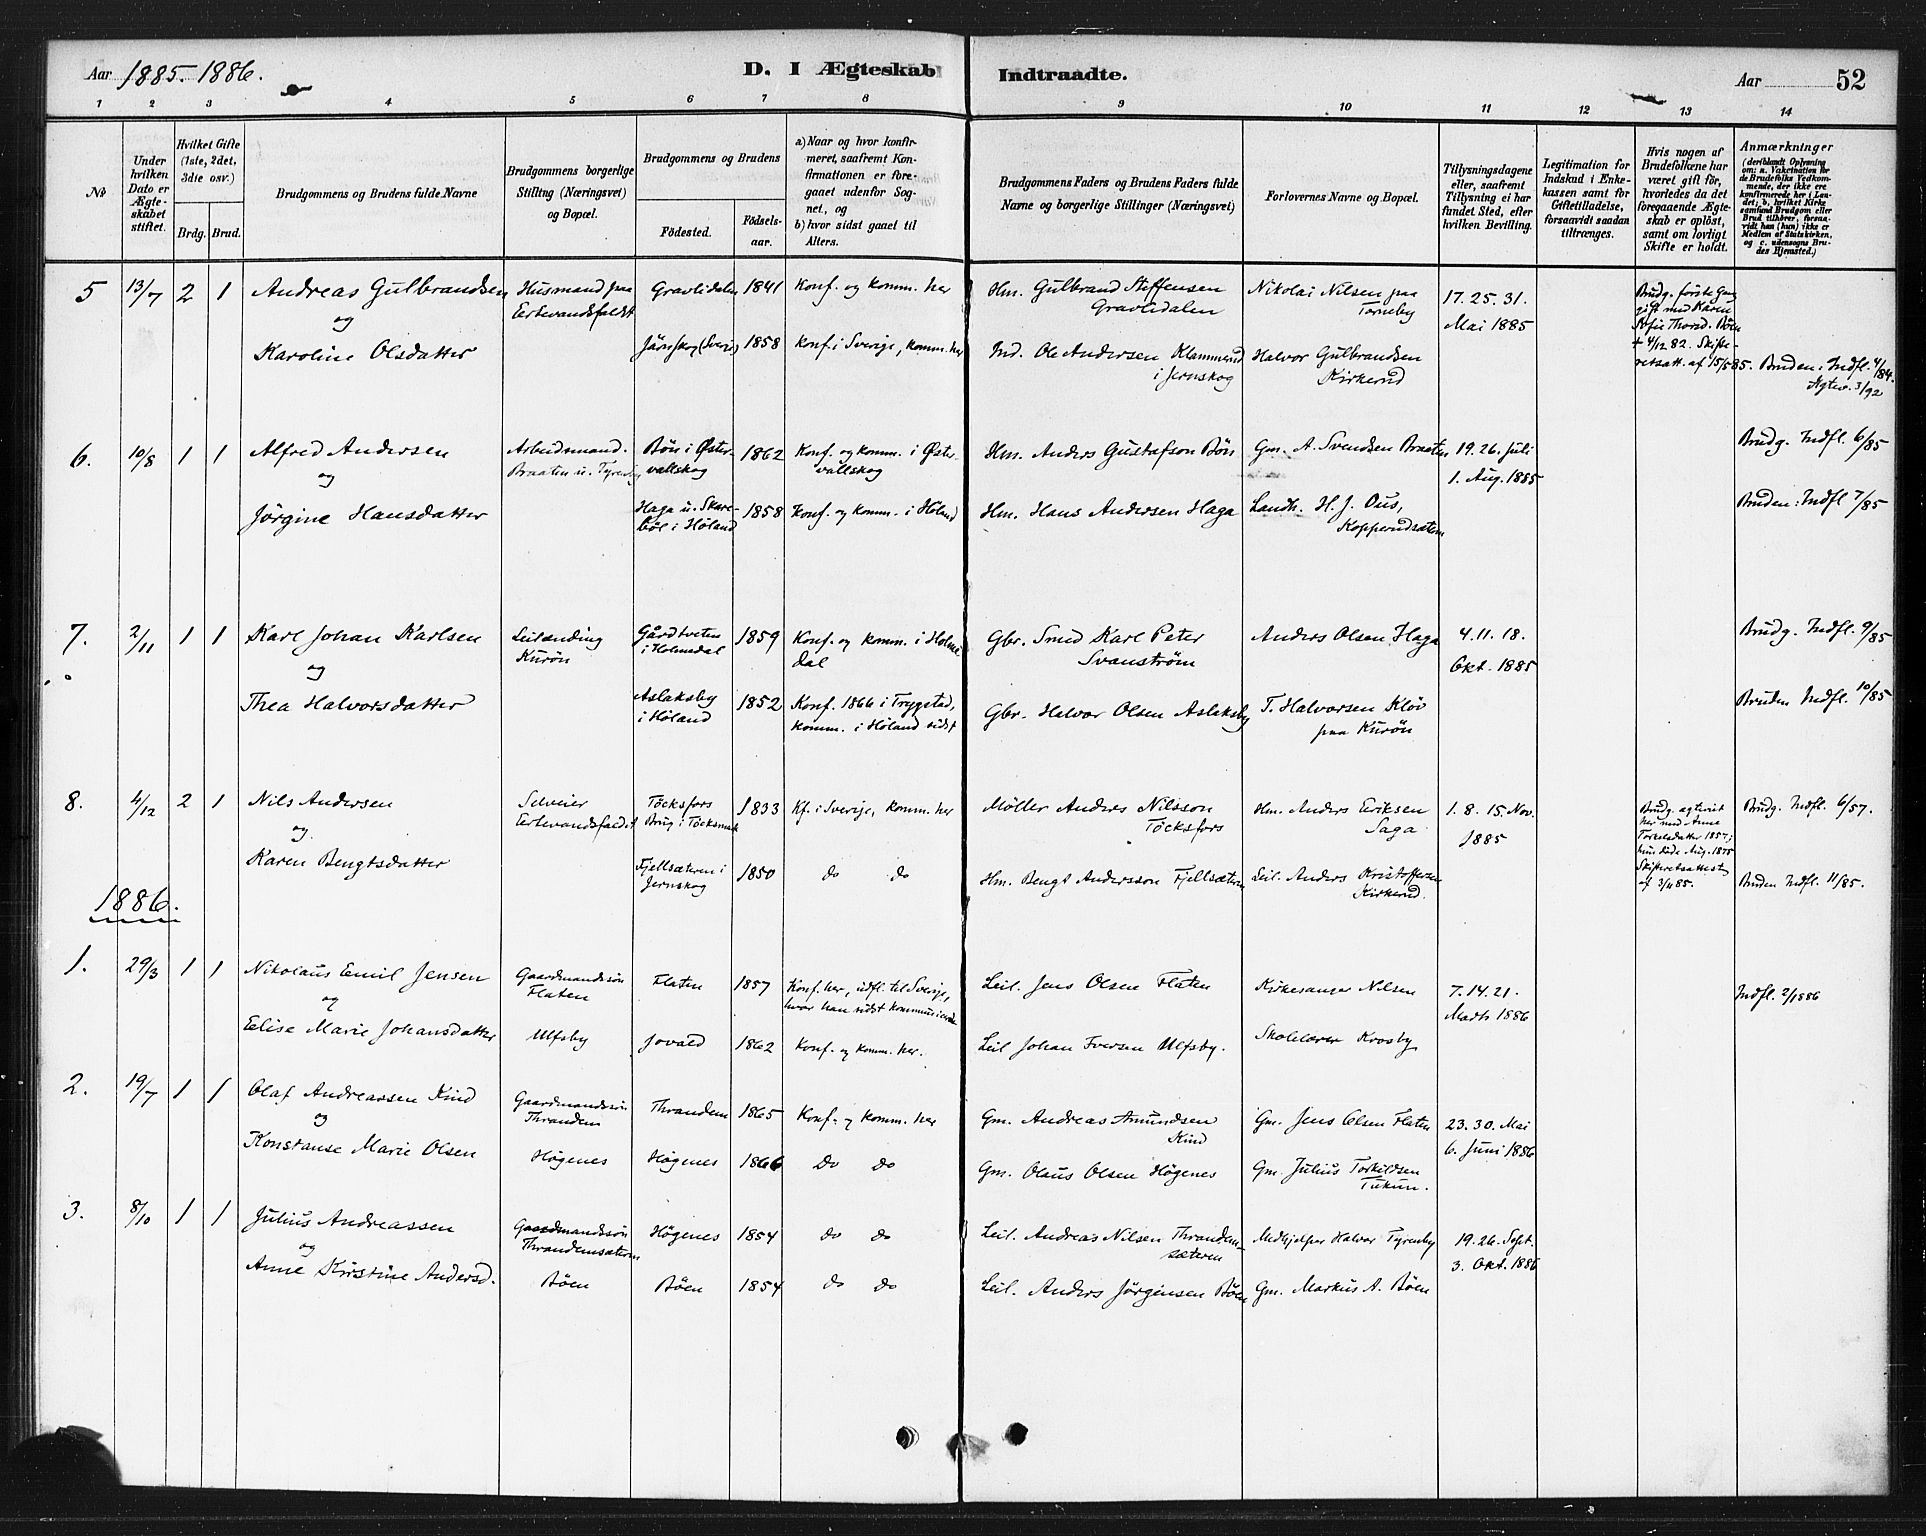 Aar 1885. 1886. D. I Ægteskab Indtraadte. Aar 52
1 2 3 4 5 6 7 8 9 10 11 12 13 14
No
Under hvilken Dato er Ægteskabet stiftet.
Hvilket Gifte (1ste, 2det, 3die osv.)
Brdg. Brud.
Brudgommens og Brudens fulde Navne
Brudgommens borgerlige Stilling (Næringsvei) og Bopæl.
Brudgommens og Brudens
Fødested. Fødselsaar.
a) Naar og hvor konfirmeret, saafremt Konfirmationen er foregaaet udenfor Sognet, og
b) hvor sidst gaaet til Alters.
Brudgommens Faders og Brudens Faders fulde Navne og borgerlige Stillinger (Næringsvei)
Forlovernes Navne og Bopæl.
Tillysningsdagene eller, saafremt Tillysning ei har fundet Sted, efter hvilken Bevilling.
Legitimation for Indskud i Enkekassen samt for Giftetilladelse, forsaavidt saadan tiltrænges.
Hvis nogen af Brudefolkene har været gift før, hvorledes da det foregaaende Ægteskab er opløst, samt om lovligt Skifte er holdt.
Anmærkninger
(deriblandt Oplysning om: a. Vakcination for de Brudefolks Vedkommende, der ikke ere konfirmerede her i Landet; b. hvilket Kirkesamfund Brudgom eller Brud tilhører, forsaavidt han (hun) ikke er Medlem af Statskirken, og c. udensogns Brudes Hjemsted.)
5 13/7 2 1 Andreas Gulbrandsen Husmand paa Gravlidalen 1841 Konf. og komm. her Hm. Gulbrand Steffensen Nikolai Nilsen paa 17. 25. 31. Brudg. første Gang
og Ertevandsfaldet Gravlidalen Torneby Mai 1885 gift med Karen
Sofie Thorsd. Bøen
Karoline Olsdatter Järnskog (Sverige) 1858 Konf. i Sverige, komm. her Ind. Ole Andersen Klammerud Halvor Gulbrandsen + 4/12 82. Skifte-
i Jernskog Kirkerud retsatt. af 15/5 85. Bruden: Indfl. 4/84.
3/92
6. 10/8 1 1 Alfred Andersen Arbeidsmand. Bön i Øster- 1862 Konf. og komm. i Øster- Hm. Anders Gustafson Bön Gm. A. Svendsen Braaten 19. 26. Juli Brudg. Indfl. 6/85
og Braaten u. Tyreby vallskog vallskog 1. Aug. 1885
Jørgine Hansdatter Haga u. Skare- 1858 Konf. og komm. i Høland Hm. Hans Andersen Haga Landh. H. J. Ous, Bruden: Indfl. 7/85
bøl i Høland Kopperudsætern
7. 2/11 1 1 Karl Johan Karlsen Leilænding Gårdtveten 1859 Konf. og komm. i Holme- Gbr. Smed Karl Peter Anders Olsen Haga 4. 11. 18. Brudg. Indfl. 9/85
og Kurøn i Holmedal dal Svanstrøm Okt. 1885
Thea Halvorsdatter Aslaksby 1852 Konf. 1866 i Trygstad, Gbr. Halvor Olsen Aslaksby T. Halvorsen Kløv Bruden Indfl. 10/85
i Høland komm. i Høland sidst paa Kurøn
8. 4/12 2 1 Nils Andersen Selveier Töcksfors 1833 Kf. i Sverige, komm. her Møller Anders Nilsson Hm. Anders Eriksen 1. 8. 15. Nov. Brudg. ægteviet Brudg. Indfl. 6/57.
og Ertevandsfaldet Brug i Töcksmark Töcksfors Saga 1885 her med Anne
Torkelsdatter 1857;
hun døde Aug. 1875
Karen Bengtsdatter Fjellsætern i 1850 do do Hm. Bengt Andersson Fjellsætern Leil. Anders Kristoffersen Skifteretsattest Bruden Indfl. 11/85.
Jernskog Kirkerud. af 3/11 85.
1886.
1. 29/3 1 1 Nikolaus Emil Jensen Gaardmandssøn Flaten 1857 Konf. her, udfl. til Sverige, Leil. Jens Olsen Flaten Kirkesanger Nilsen 7. 14. 21. Indfl. 2/1886
og Flaten hvor han sidst kommunicerede Marts 1886
Eelise Marie Johansdatter Ulfsby Jovald 1862 Konf. og komm. her. Leil Johan Iversen Ulfsby. Skolelærer Krosby
2. 19/7 1 1 Olaf Andreassen Kind Gaardmandssøn Thrandem 1865 Konf. og komm. her Gm. Andreas Amundsen Gm. Jens Olsen Flaten 23. 30. Mai
og Thrandem Kind 6. Juni 1886
Konstanse Marie Olsen Høgenes Høgenes 1866 do do Gm. Olaus Olsen Høgenes Gm. Julius Torkildsen
Tukun.
3. 8/10 1 1 Julius Andreassen Gaardmandssøn Høgenes 1854 do do Leil. Andreas Nilsen Thrandem- Medhjelper Halvor Tyreby 19. 26. Sept.
og Thrandemsætern sætern 3. Okt. 1886
Anne Kirstine Andersd. Böen Böen 1854 do do Leil. Anders Jörgensen Böen Gm. Markus A. Böen